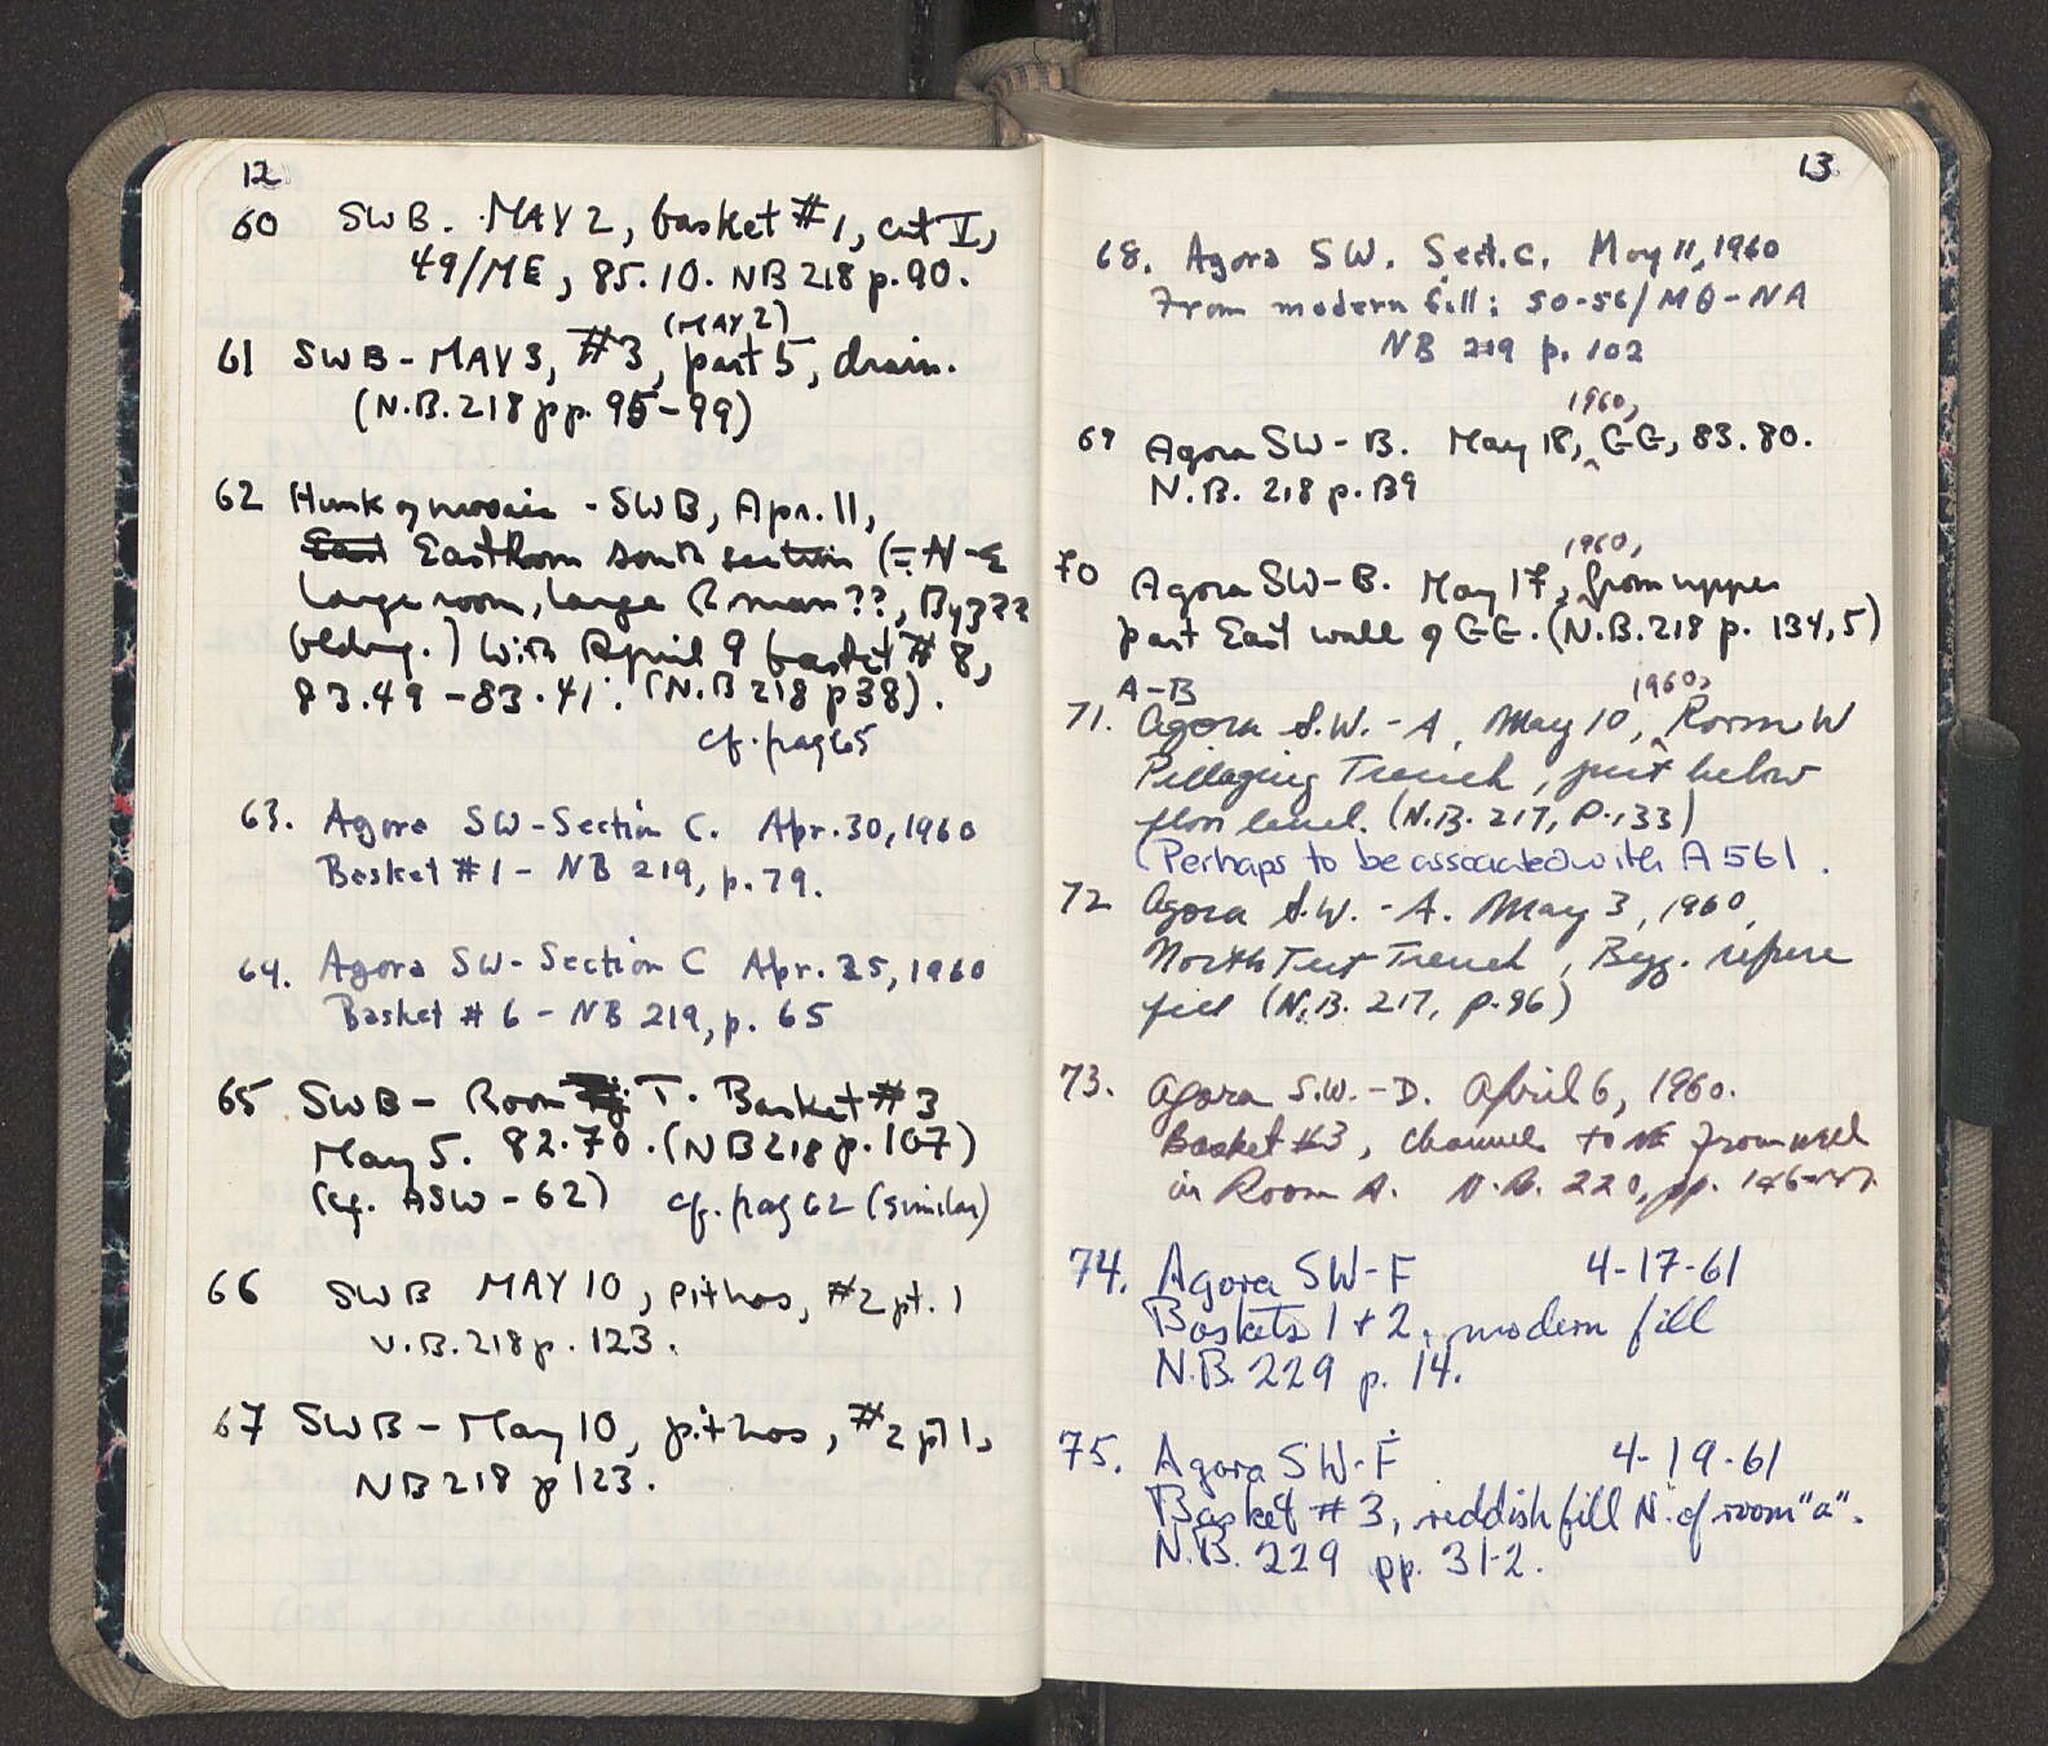 12
60 SWB. MAY 2, basket #1, cut I,
49/ME, 85.10. NB 218 p. 90.
(MAY 2)
61 SWB - MAY 3, #3, part 5, drain.
(N.B. 218 pp. 95-99)
62 Hunk of mosaic - SWB, Apr. 11,
East Easthorn south section (= N-E
large room, large Roman??, Byz???
bldng.) With April 9 basket #8,
83.49 - 83.41. (N.B 218 p 38).
cf. pag 65
63. Agora SW-Section C. Apr. 30, 1960
Basket #1 - NB 219, p. 79.
64. Agora SW-Section C Apr. 25, 1960
Basket # 6 - NB 219, p. 65
65 SWB - Room T. Basket #3
May 5. 82.70. (NB 218 p. 107)
(cf. ASW-62) cf. pag 62 (similar)
66 SWB MAY 10, pithos, #2 pt. 1
N.B. 218 p. 123.
67 SWB - May 10, pithos, #2 pt 1,
NB 218 p 123.
13
68. Agora SW. Sect. C. May 11, 1960
From modern fill: 50-56/MO-NA
NB 219 p. 102
1960,
69 Agora SW-B. May 18, GG, 83.80.
N.B. 218 p. 139
1960,
70 Agora SW-B. May 17, from upper
part East wall of GG. (N.B. 218 p. 134,5)
A-B 1960,
71. Agora S.W.-A, May 10, Room W
Pillaging Trench, just below
floor level. (N.B. 217, P. 133)
(Perhaps to be associated with A 561.
72 Agora S.W.-A. May 3, 1960,
North Test Trench, Byz. refuse
fill (N.B. 217, p. 96)
73. Agora S.W.-D. April 6, 1960.
Basket #3, channel to NE from well
in Room A. N.B. 220, pp.
74. Agora SW-F 4-17-61
Baskets 1 + 2, modern fill
N.B. 229 p. 14.
75. Agora SW-F 4-19-61
Basket # 3, reddish fill N. of room "a".
N.B. 229 pp. 31-2.